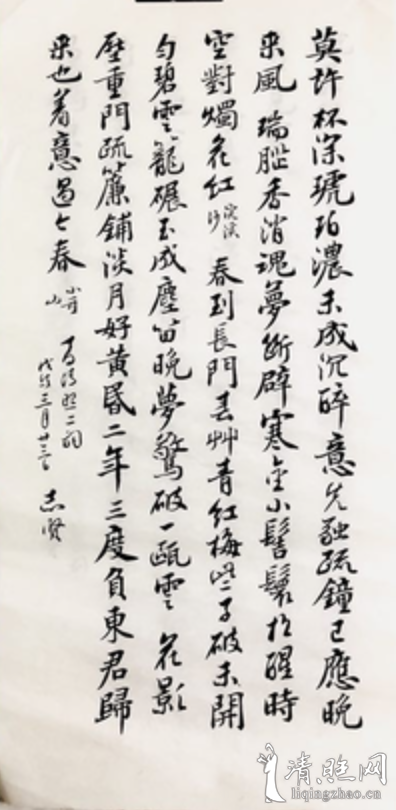 莫許杯深琥珀濃未成沉醉意先融疏鐘已應晚
來風 瑞腦香消魂夢斷辟寒金小髻鬟松醒時
空對燭花紅 浣溪沙 春到長門春艸青紅梅些子破未開
勻碧雲籠碾玉成塵留晚夢驚破一甌雲 花影
壓重門疏簾鋪淡月好黃昏二年三度負東君歸
來也著意過今春 小重山
清照二詞
戊戌三月廿三 志賢
清照网
liqingzhao.cn